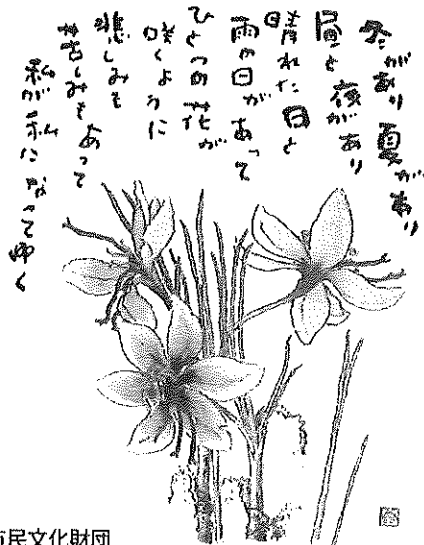 冬があり 夏があり
昼と 夜があり
晴れた 日と
雨の日が あって
ひとつの 花が
咲くように
悲しみも
苦しみもあって
私が 私になってゆく
市民文化財団